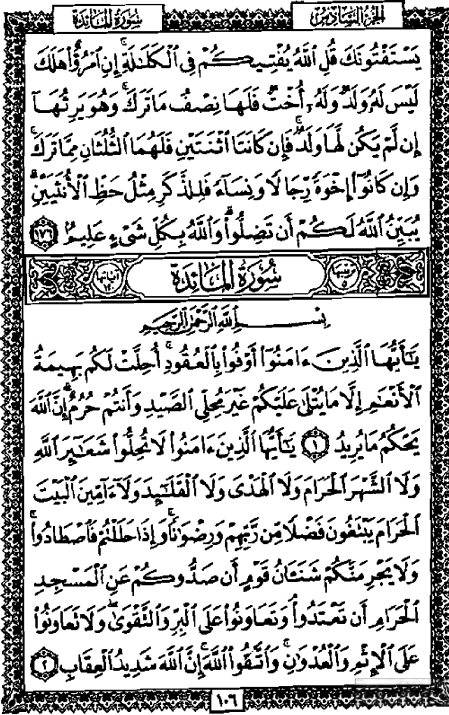 سُورَةُ المَائدَة
الجزء السَّادس
يَسْتَفْتُونَكَ قُلِ ٱللَّهُ يُفْتِيكُمْ فِى ٱلْكَلَٰلَةِ ۚ إِنِ ٱمْرُؤٌا۟ هَلَكَ
لَيْسَ لَهُۥ وَلَدٌ وَلَهُۥٓ أُخْتٌ فَلَهَا نِصْفُ مَا تَرَكَ ۚ وَهُوَ يَرِثُهَآ
إِن لَّمْ يَكُن لَّهَا وَلَدٌ ۚ فَإِن كَانَتَا ٱثْنَتَيْنِ فَلَهُمَا ٱلثُّلُثَانِ مِمَّا تَرَكَ ۚ
وَإِن كَانُوٓا۟ إِخْوَةً رِّجَالًا وَنِسَآءً فَلِلذَّكَرِ مِثْلُ حَظِّ ٱلْأُنثَيَيْنِ ۗ
يُبَيِّنُ ٱللَّهُ لَكُمْ أَن تَضِلُّوا۟ ۗ وَٱللَّهُ بِكُلِّ شَىْءٍ عَلِيمٌۢ ١٧٦
سُورَةُ المَائدَة
بِسْمِ ٱللَّهِ ٱلرَّحْمَٰنِ ٱلرَّحِيمِ
يَٰٓأَيُّهَا ٱلَّذِينَ ءَامَنُوٓا۟ أَوْفُوا۟ بِٱلْعُقُودِ ۚ أُحِلَّتْ لَكُم بَهِيمَةُ
ٱلْأَنْعَٰمِ إِلَّا مَا يُتْلَىٰ عَلَيْكُمْ غَيْرَ مُحِلِّى ٱلصَّيْدِ وَأَنتُمْ حُرُمٌ ۗ إِنَّ ٱللَّهَ
يَحْكُمُ مَا يُرِيدُ ١ يَٰٓأَيُّهَا ٱلَّذِينَ ءَامَنُوا۟ لَا تُحِلُّوا۟ شَعَٰٓئِرَ ٱللَّهِ
وَلَا ٱلشَّهْرَ ٱلْحَرَامَ وَلَا ٱلْهَدْىَ وَلَا ٱلْقَلَٰٓئِدَ وَلَآ ءَآمِّينَ ٱلْبَيْتَ
ٱلْحَرَامَ يَبْتَغُونَ فَضْلًا مِّن رَّبِّهِمْ وَرِضْوَٰنًا ۚ وَإِذَا حَلَلْتُمْ فَٱصْطَادُوا۟ ۚ
وَلَا يَجْرِمَنَّكُمْ شَنَـَٔانُ قَوْمٍ أَن صَدُّوكُمْ عَنِ ٱلْمَسْجِدِ
ٱلْحَرَامِ أَن تَعْتَدُوا۟ ۘ وَتَعَاوَنُوا۟ عَلَى ٱلْبِرِّ وَٱلتَّقْوَىٰ ۖ وَلَا تَعَاوَنُوا۟
عَلَى ٱلْإِثْمِ وَٱلْعُدْوَٰنِ ۚ وَٱتَّقُوا۟ ٱللَّهَ ۖ إِنَّ ٱللَّهَ شَدِيدُ ٱلْعِقَابِ ٢
١٠٦